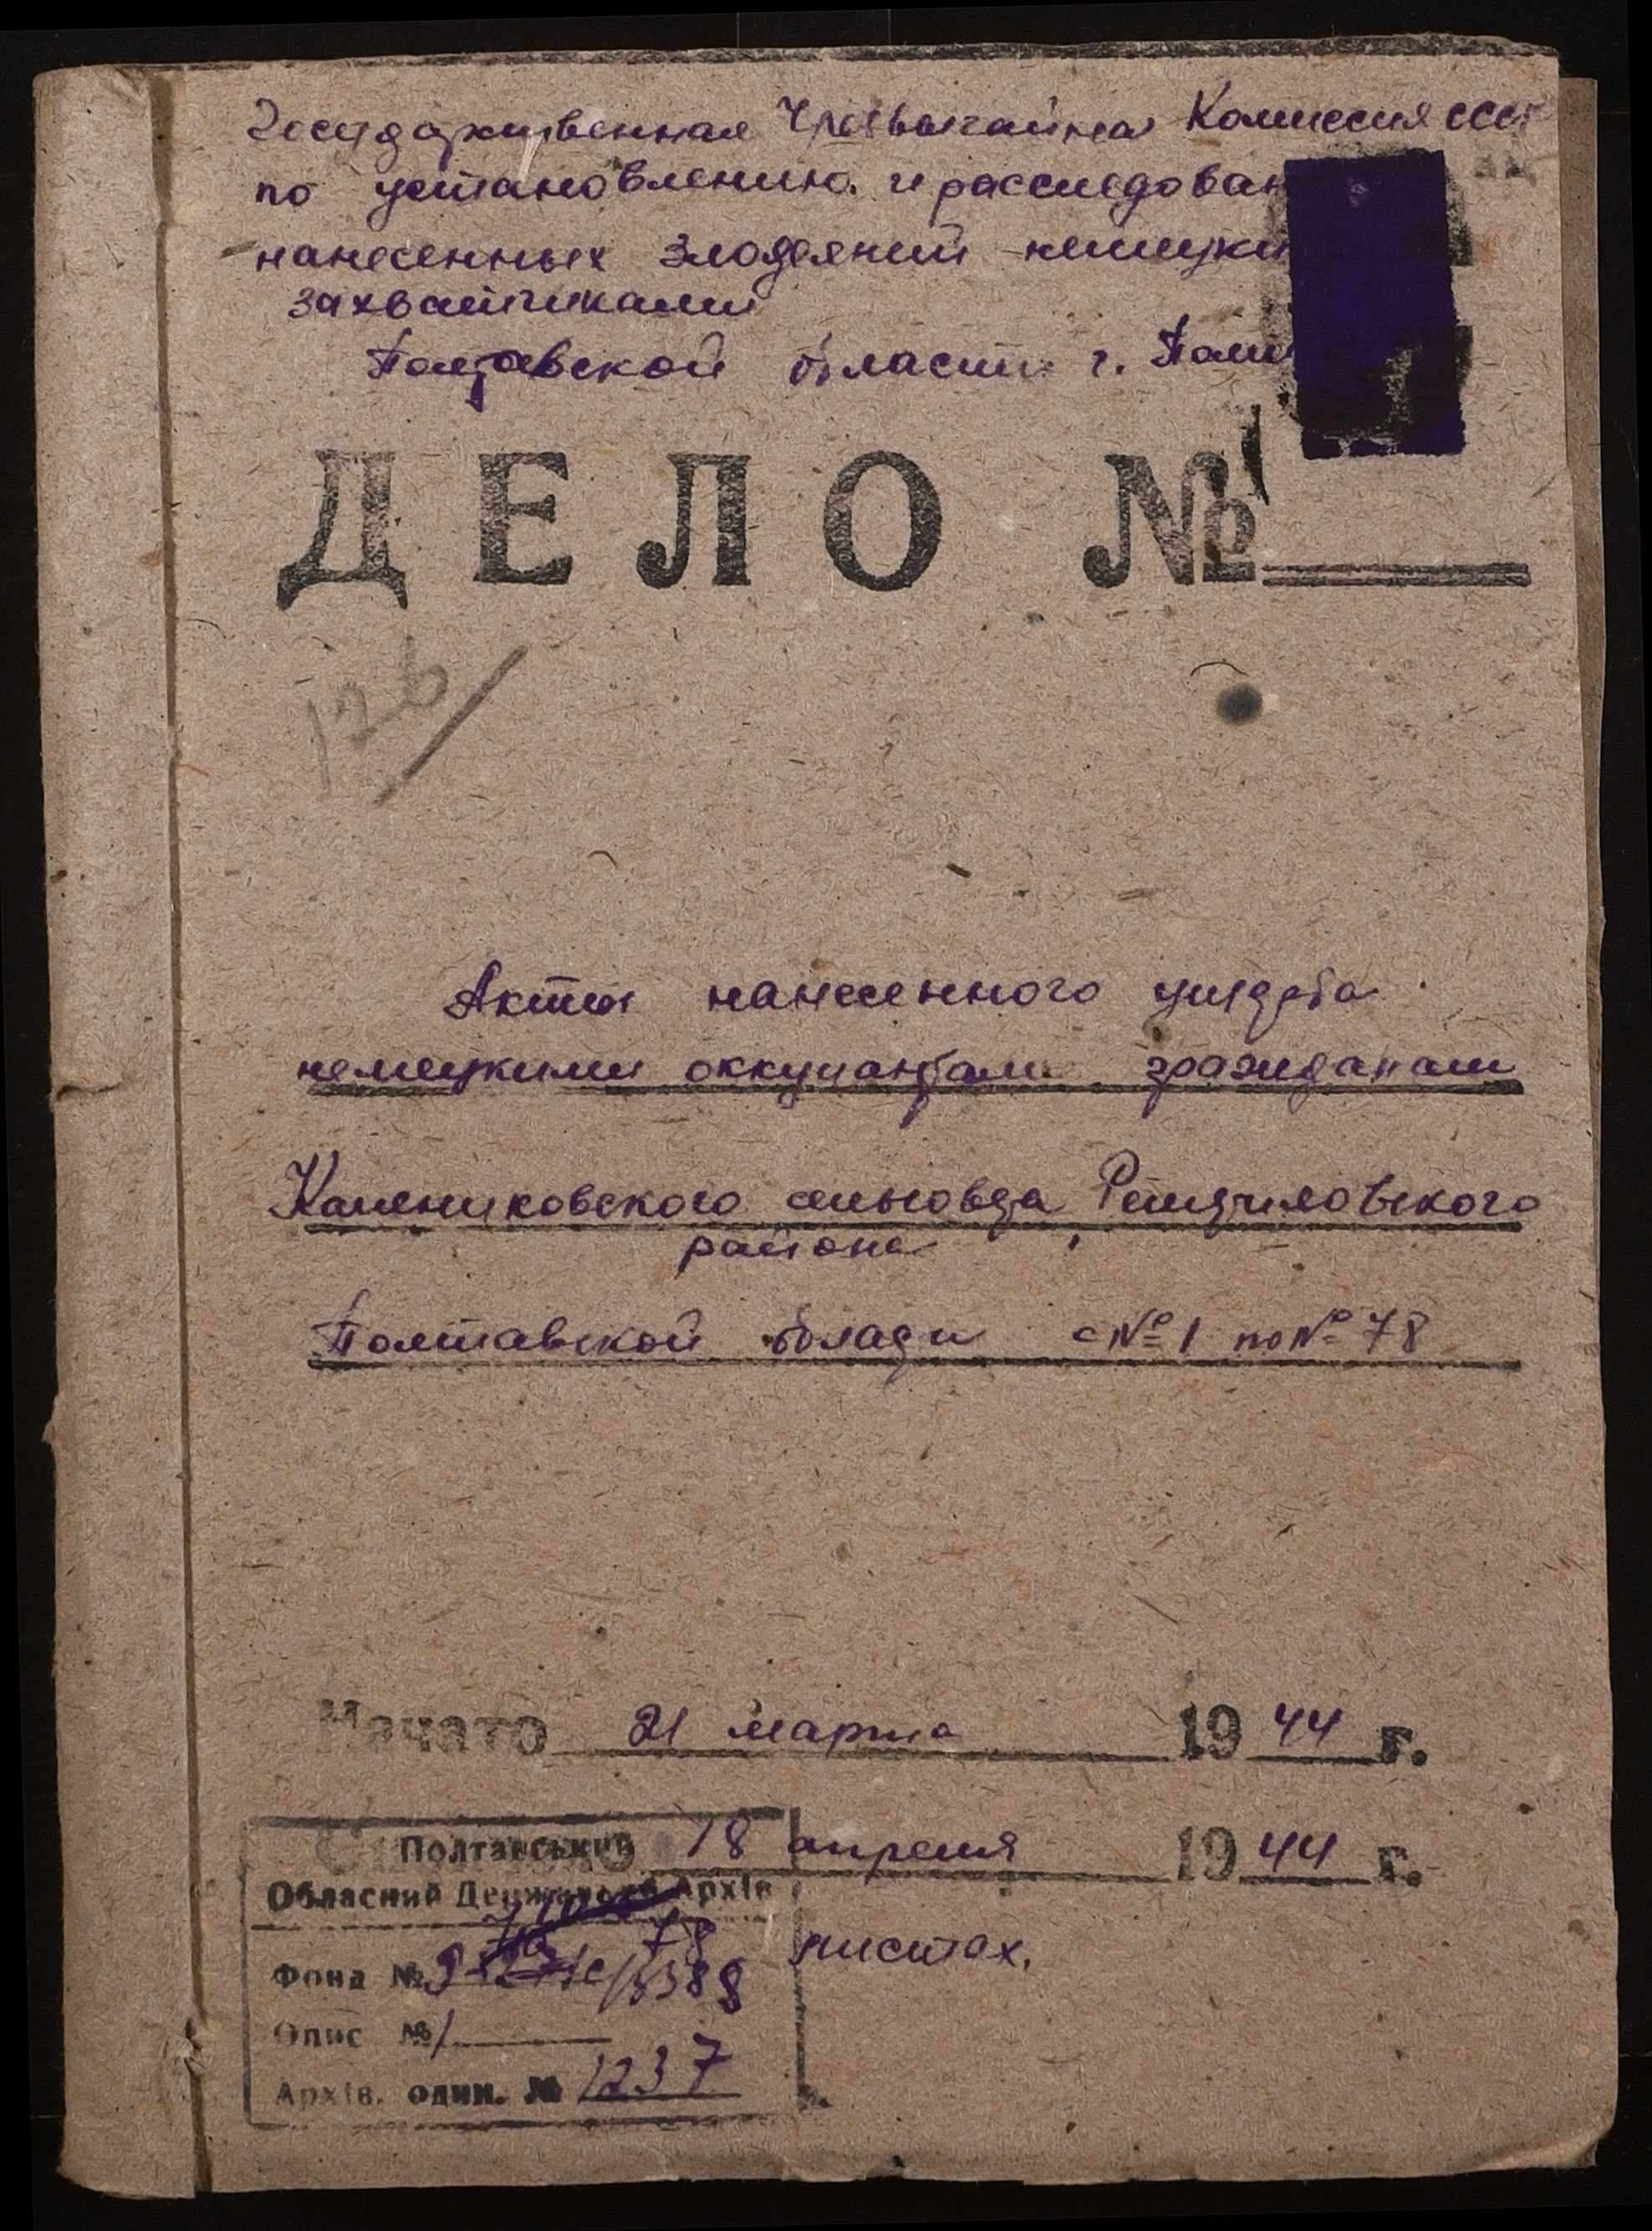 Государственная Чрезвычайная Комиссия СССР
по установлению и расследован
нанесенных злодеяний немецки
захватчиками
Полтавской области г. Полт
ДЕЛО №
126/
Акты нанесенного ущерба
немецкими оккупантами гражданам
Калениковского сельсовета Решетиловского
района
Полтавской области с № 1 по № 78
Начато 21 марта 1944 г.
18 апреля 1944 г.
Полтавський
Обласний Державний Архів
78 листах.
Фонд № 3388
Опис № 1
Архів. один. № 1237